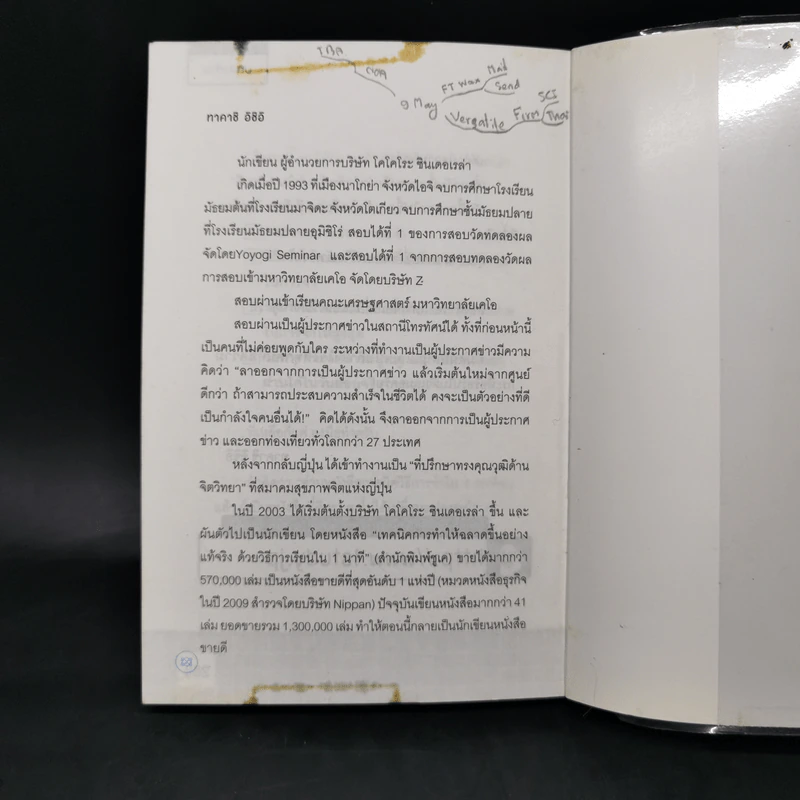 TBA
9 May
FT
Mail
Send
Firm
ทาคาชิ อิชิอิ
นักเขียน ผู้อำนวยการบริษัท โคโคโระ ซินเดอเรล่า
เกิดเมื่อปี 1993 ที่เมืองนาโกย่า จังหวัดไอจิ จบการศึกษาโรงเรียน
มัธยมต้นที่โรงเรียนมาจิดะ จังหวัดโตเกียว จบการศึกษาชั้นมัธยมปลาย
ที่โรงเรียนมัธยมปลายอุมิชิโร่ สอบได้ที่ 1 ของการสอบวัดทดลองผล
จัดโดยYoyogi Seminar และสอบได้ที่ 1 จากการสอบทดลองวัดผล
การสอบเข้ามหาวิทยาลัยเคโอ จัดโดยบริษัท Z
สอบผ่านเข้าเรียนคณะเศรษฐศาสตร์ มหาวิทยาลัยเคโอ
สอบผ่านเป็นผู้ประกาศข่าวในสถานีโทรทัศน์ได้ ทั้งที่ก่อนหน้านี้
เป็นคนที่ไม่ค่อยพูดกับใคร ระหว่างที่ทำงานเป็นผู้ประกาศข่าวมีความ
คิดว่า “ลาออกจากการเป็นผู้ประกาศข่าว แล้วเริ่มต้นใหม่จากศูนย์
ดีกว่า ถ้าสามารถประสบความสำเร็จในชีวิตได้ คงจะเป็นตัวอย่างที่ดี
เป็นกำลังใจคนอื่นได้!” คิดได้ดังนั้น จึงลาออกจากการเป็นผู้ประกาศ
ข่าว และออกท่องเที่ยวทั่วโลกกว่า 27 ประเทศ
หลังจากกลับญี่ปุ่น ได้เข้าทำงานเป็น “ที่ปรึกษาทรงคุณวุฒิด้าน
จิตวิทยา” ที่สมาคมสุขภาพจิตแห่งญี่ปุ่น
ในปี 2003 ได้เริ่มต้นตั้งบริษัท โคโคโระ ซินเดอเรล่า ขึ้น และ
ผันตัวไปเป็นนักเขียน โดยหนังสือ “เทคนิคการทำให้ฉลาดขึ้นอย่าง
แท้จริง ด้วยวิธีการเรียนใน 1 นาที” (สำนักพิมพ์ชูเค) ขายได้มากกว่า
570,000 เล่ม เป็นหนังสือขายดีที่สุดอันดับ 1 แห่งปี (หมวดหนังสือธุรกิจ
ในปี 2009 สำรวจโดยบริษัท Nippan) ปัจจุบันเขียนหนังสือมากกว่า 41
เล่ม ยอดขายรวม 1,300,000 เล่ม ทำให้ตอนนี้กลายเป็นนักเขียนหนังสือ
ขายดี